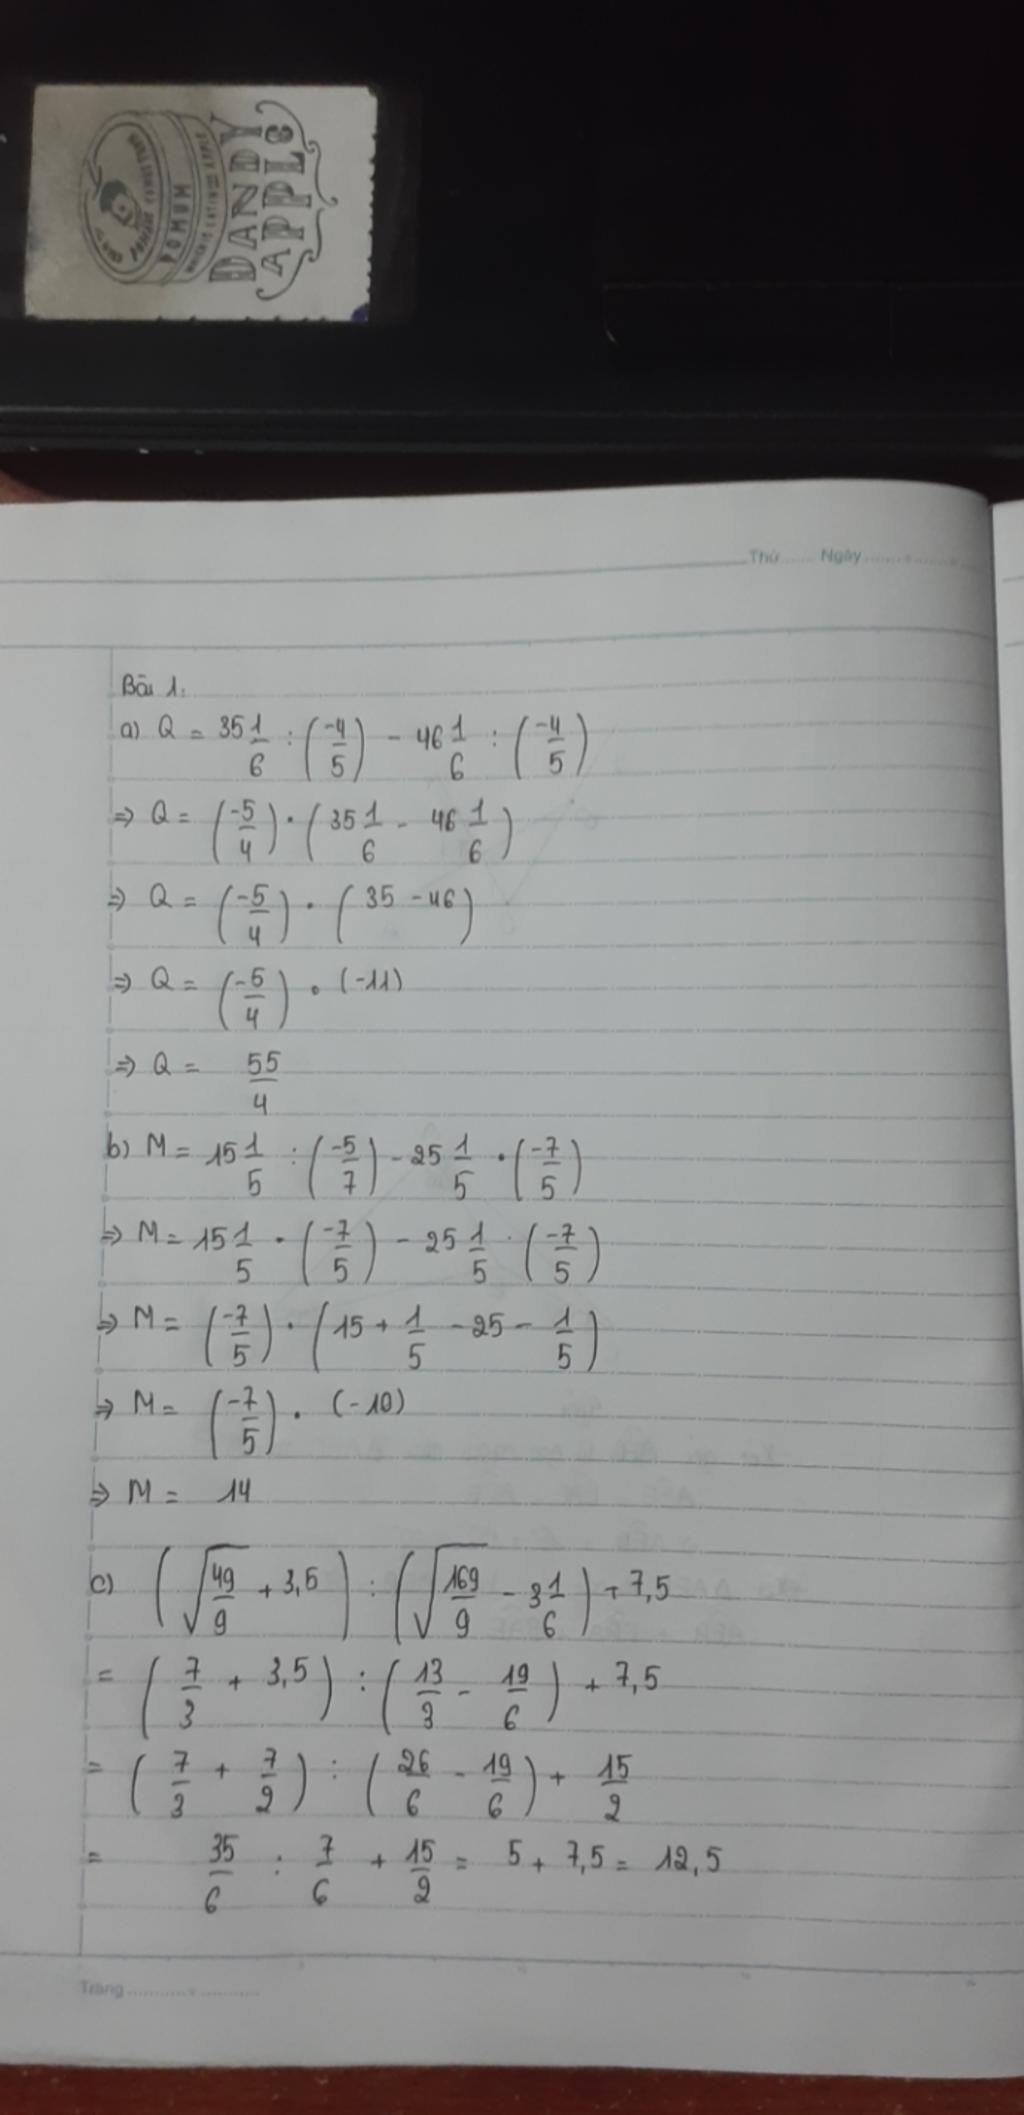 DANDY
APPLE
POMUM
Thứ...... Ngày..............
Bài 1.
a) Q = 35 1/6 : (-4/5) - 46 1/6 : (-4/5)
=> Q = (-5/4) . (35 1/6 - 46 1/6)
=> Q = (-5/4) . (35 - 46)
=> Q = (-5/4) . (-11)
=> Q = 55/4
b) M = 15 1/5 : (-5/7) - 25 1/5 . (-7/5)
=> M = 15 1/5 . (-7/5) - 25 1/5 . (-7/5)
=> M = (-7/5) . (15 + 1/5 - 25 - 1/5)
=> M = (-7/5) . (-10)
=> M = 14
c) (√49/9 + 3,5) : (√169/9 - 3 1/6) + 7,5
= (7/3 + 3,5) : (13/3 - 19/6) + 7,5
= (7/3 + 7/2) : (26/6 - 19/6) + 15/2
= 35/6 : 7/6 + 15/2 = 5 + 7,5 = 12,5
Trang......................